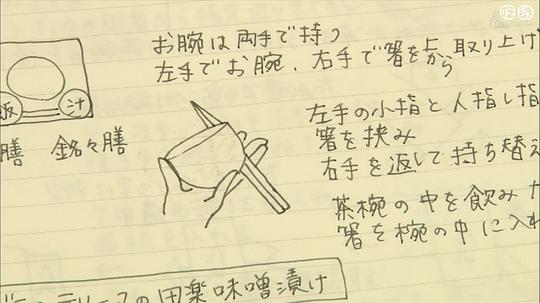 お腕は両手で持つ
左手でお腕、右手で箸を上から取り上げ
飯
汁
膳 銘々膳
左手の小指と人指し指
箸を挟み
右手を返して持ち替え
茶椀の中を飲み
箸を椀の中に入れ
の田楽味噌漬け